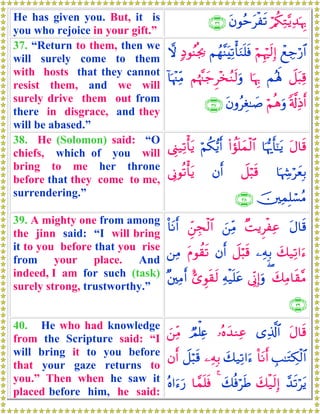 He has given you. But, it is
you who rejoice in your gift.”
بِهَدِيَّتِكُمْ تَفْرَحُونَ ﴿٣٦﴾
37. “Return to them, then we
will surely come to them
with hosts that they cannot
resist them, and we will
surely drive them out from
there in disgrace, and they
will be abased.”
ٱرْجِعْ إِلَيْهِمْ فَلَنَأْتِيَنَّهُم بِجُنُودٍ لَّا
قِبَلَ لَهُم بِهَا وَلَنُخْرِجَنَّهُم مِّنْهَآ
أَذِلَّةً وَهُمْ صَـٰغِرُونَ ﴿٣٧﴾
38. He (Solomon) said: “O
chiefs, which of you will
bring to me her throne
before that they come to me,
surrendering.”
قَالَ يَـٰٓأَيُّهَا ٱلْمَلَؤُا۟ أَيُّكُمْ يَأْتِينِى
بِعَرْشِهَا قَبْلَ أَن يَأْتُونِى
مُسْلِمِينَ ﴿٣٨﴾
39. A mighty one from among
the jinn said: “I will bring
it to you before that you rise
from your place. And
indeed, I am for such (task)
surely strong, trustworthy.”
قَالَ عِفْرِيتٌ مِّنَ ٱلْجِنِّ أَنَا۠
ءَاتِيكَ بِهِۦ قَبْلَ أَن تَقُومَ مِن
مَّقَامِكَ ۖ وَإِنِّى عَلَيْهِ لَقَوِىٌّ أَمِينٌ
﴿٣٩﴾
40. He who had knowledge
from the Scripture said: “I
will bring it to you before
that your gaze returns to
you.” Then when he saw it
placed before him, he said:
قَالَ ٱلَّذِى عِندَهُۥ عِلْمٌ مِّنَ
ٱلْكِتَـٰبِ أَنَا۠ ءَاتِيكَ بِهِۦ قَبْلَ أَن
يَرْتَدَّ إِلَيْكَ طَرْفُكَ ۚ فَلَمَّا رَءَاهُ